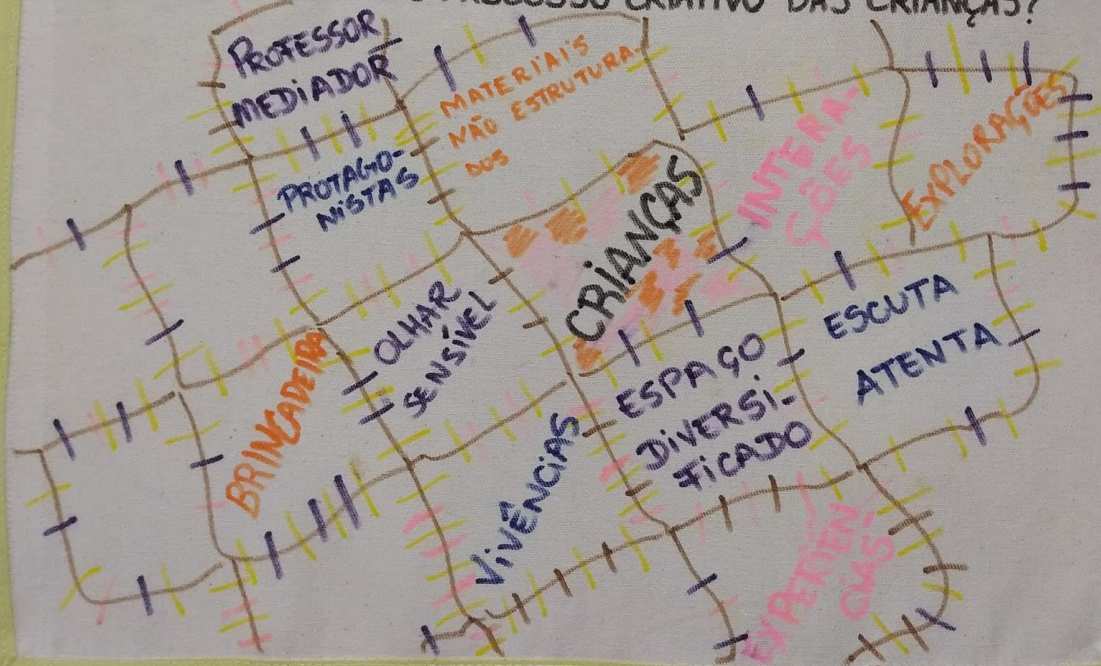 PROCESSO CRIATIVO DAS CRIANÇAS?
PROFESSOR
MEDIADOR
MATERIAIS
NÃO ESTRUTURA-
DOS
PROTAGO-
NISTAS
CRIANÇAS
INTERA-
ÇÕES
EXPLORAÇÕES
BRINCADEIRA
OLHAR
SENSÍVEL
ESCUTA
ATENTA
ESPAÇO
DIVERSI-
FICADO
VIVÊNCIAS
EXPERIÊN
CIAS